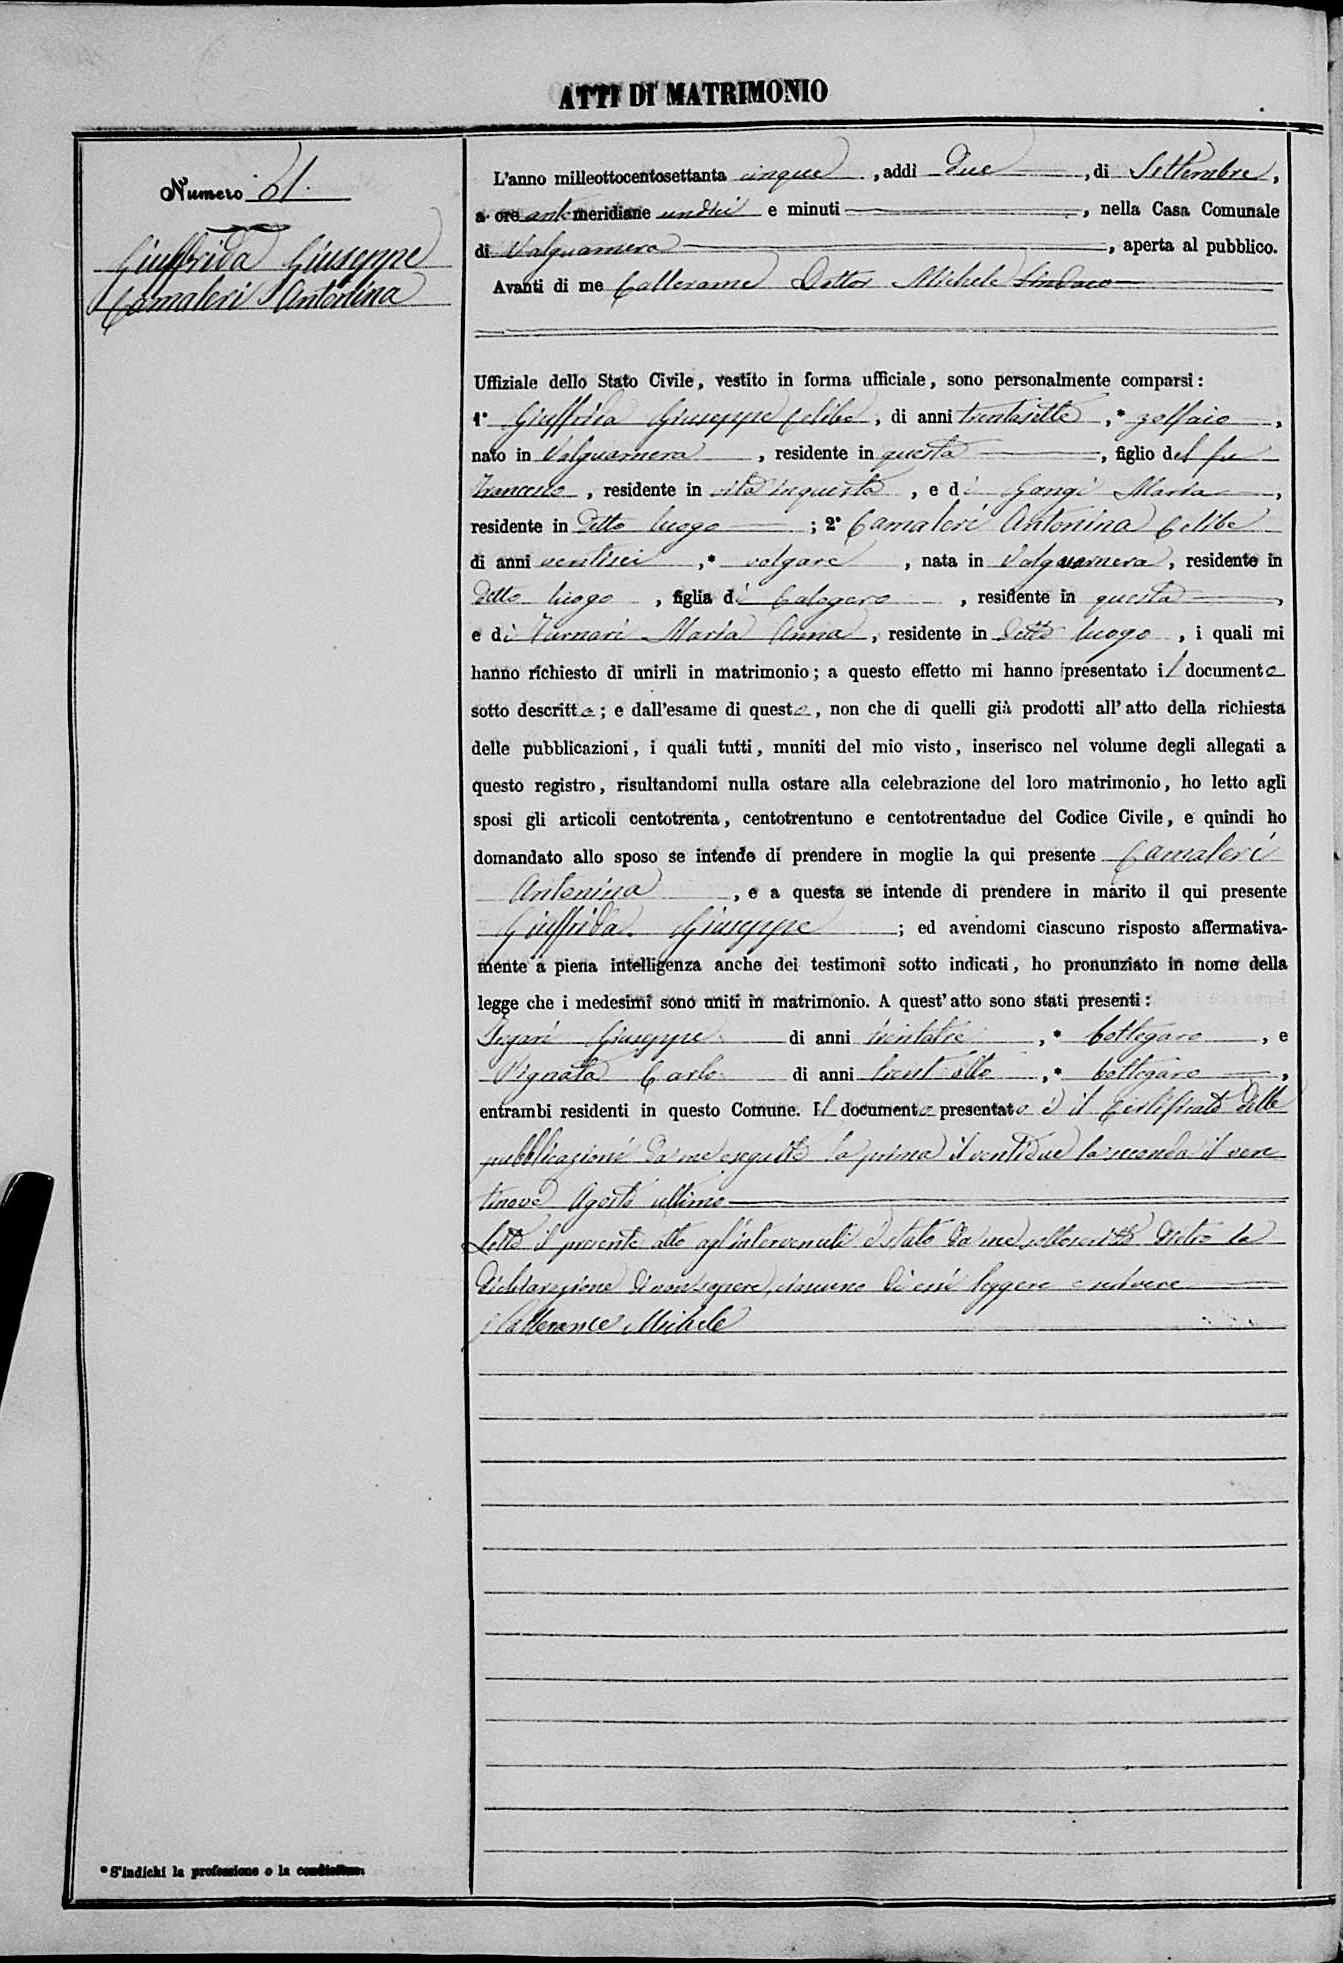 ATTI DI MATRIMONIO
Numero 61.
Giuffrida Giuseppe
Camaleri Antonina
L'anno milleottocentosettanta cinque, addi due, di Settembre,
a ore ante meridiane undici e minuti, nella Casa Comunale
di Valguarnera, aperta al pubblico.
Avanti di me Collerame Dottor Michele Sindaco
Uffiziale dello Stato Civile, vestito in forma ufficiale, sono personalmente comparsi:
1° Giuffrida Giuseppe Celibe, di anni trentasette,* zolfaio,
nato in Valguarnera, residente in questa, figlio del fu
Francesco, residente in vita in questa, e di Gangi Maria,
residente in detto luogo; 2° Camaleri Antonina Celibe
di anni ventisei,* volgare, nata in Valguarnera, residente in
detto luogo, figlia di Calogero, residente in questa,
e di Maria Anna, residente in detto luogo, i quali mi
hanno richiesto di unirli in matrimonio; a questo effetto mi hanno presentato il documento
sotto descritto; e dall'esame di questo, non che di quelli già prodotti all'atto della richiesta
delle pubblicazioni, i quali tutti, muniti del mio visto, inserisco nel volume degli allegati a
questo registro, risultandomi nulla ostare alla celebrazione del loro matrimonio, ho letto agli
sposi gli articoli centotrenta, centotrentuno e centotrentadue del Codice Civile, e quindi ho
domandato allo sposo se intende di prendere in moglie la qui presente Camaleri
Antonina, e a questa se intende di prendere in marito il qui presente
Giuffrida Giuseppe; ed avendomi ciascuno risposto affermativa-
mente a piena intelligenza anche dei testimoni sotto indicati, ho pronunziato in nome della
legge che i medesimi sono uniti in matrimonio. A quest'atto sono stati presenti:
Giuseppe di anni trentatre,* bottegaro, e
Pignata Carlo di anni trent'otto,* bottegaro,
entrambi residenti in questo Comune. Il documento presentato è il certificato delle
pubblicazioni da me eseguite la prima il ventidue la seconda il ven
tinove Agosto ultimo
Letto il presente atto agl'intervenuti è stato da me sottoscritto dietro la
dichiarazione di non sapere ciascuno di essi leggere e scrivere
Collerame Michele
*S'indichi la professione o la condizione.